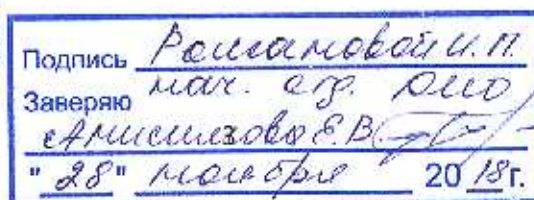 Подпись Романовой И.П.
Заверяю нач. отд. ОМО
Анисимова Е.В.
"28" ноября 2018г.